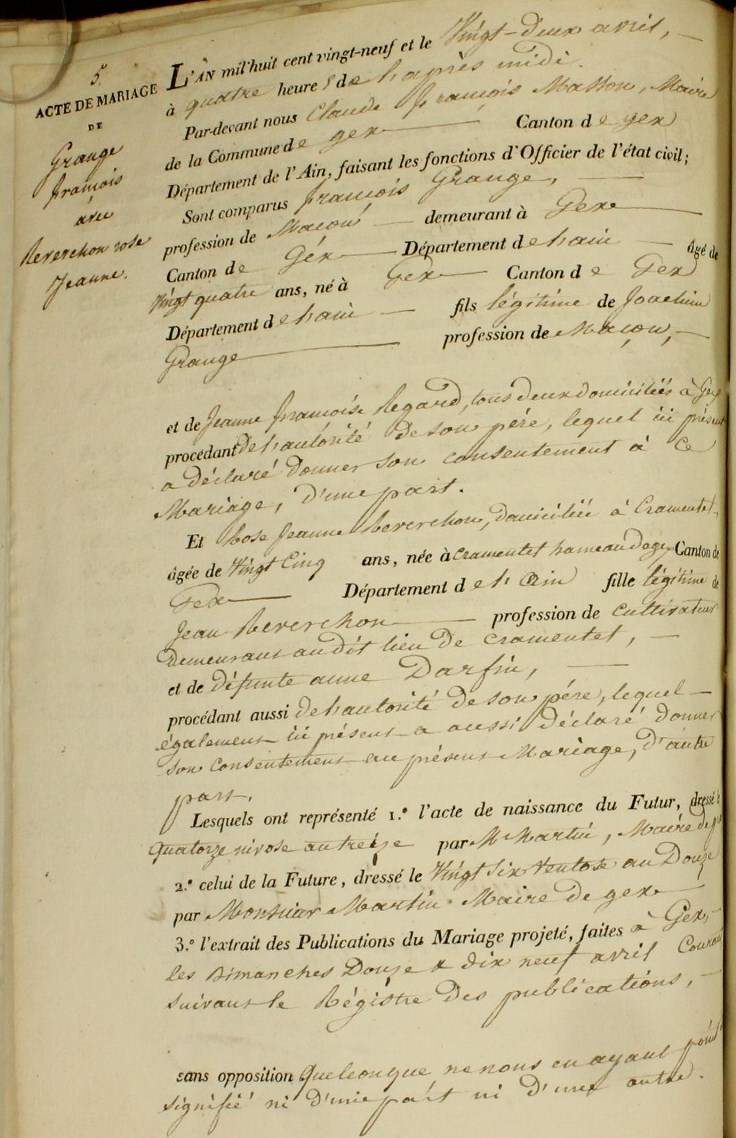 5.
ACTE DE MARIAGE
DE
Grange
françois
avec
Reverchon rose
Jeanne.
L'AN mil huit cent vingt-neuf et le Vingt-deux avril,
à quatre heures de l'après midi.
Par-devant nous Claude françois Masson, Maire
de la Commune de gex Canton de gex
Département de l'Ain, faisant les fonctions d'Officier de l'état civil;
Sont comparus françois Grange,
profession de Maçon demeurant à Gex
Canton de Gèx Département de l'ain âgé de
Vingt quatre ans, né à Gex Canton de Gex
Département de l'ain fils légitime de Joachim
Grange profession de Maçon,
et de Jeanne françoise Regard, tous deux domiciliés à Gex
procédant de l'autorité de son père, lequel ici présent
a déclaré donner son consentement à ce
Mariage, d'une part.
Et Rose Jeanne Reverchon, domiciliée à Cramentet
âgée de Vingt Cinq ans, née à cramentet hameau de gex Canton de
Gex Département de l'Ain fille légitime de
Jean Reverchon profession de cultivateur
demeurant au dit lieu de cramentet,
et de défunte anne Darfin,
procédant aussi de l'autorité de son père, lequel
également ici présent a aussi déclaré donner
son consentement au présent Mariage, d'autre
part.
Lesquels ont représenté 1.º l'acte de naissance du Futur, dressé le
quatorze nivose an treize par Mr Martin, Maire de gex
2.º celui de la Future, dressé le Vingt six Ventose an Douze
par Monsieur Martin Maire de gex
3.º l'extrait des Publications du Mariage projeté, faites à Gex,
les Dimanches Douze & dix neuf avril Courant
suivant le Régistre des publications,
sans opposition quelconque ne nous en ayant point
signifié ni d'une part ni d'une autre.